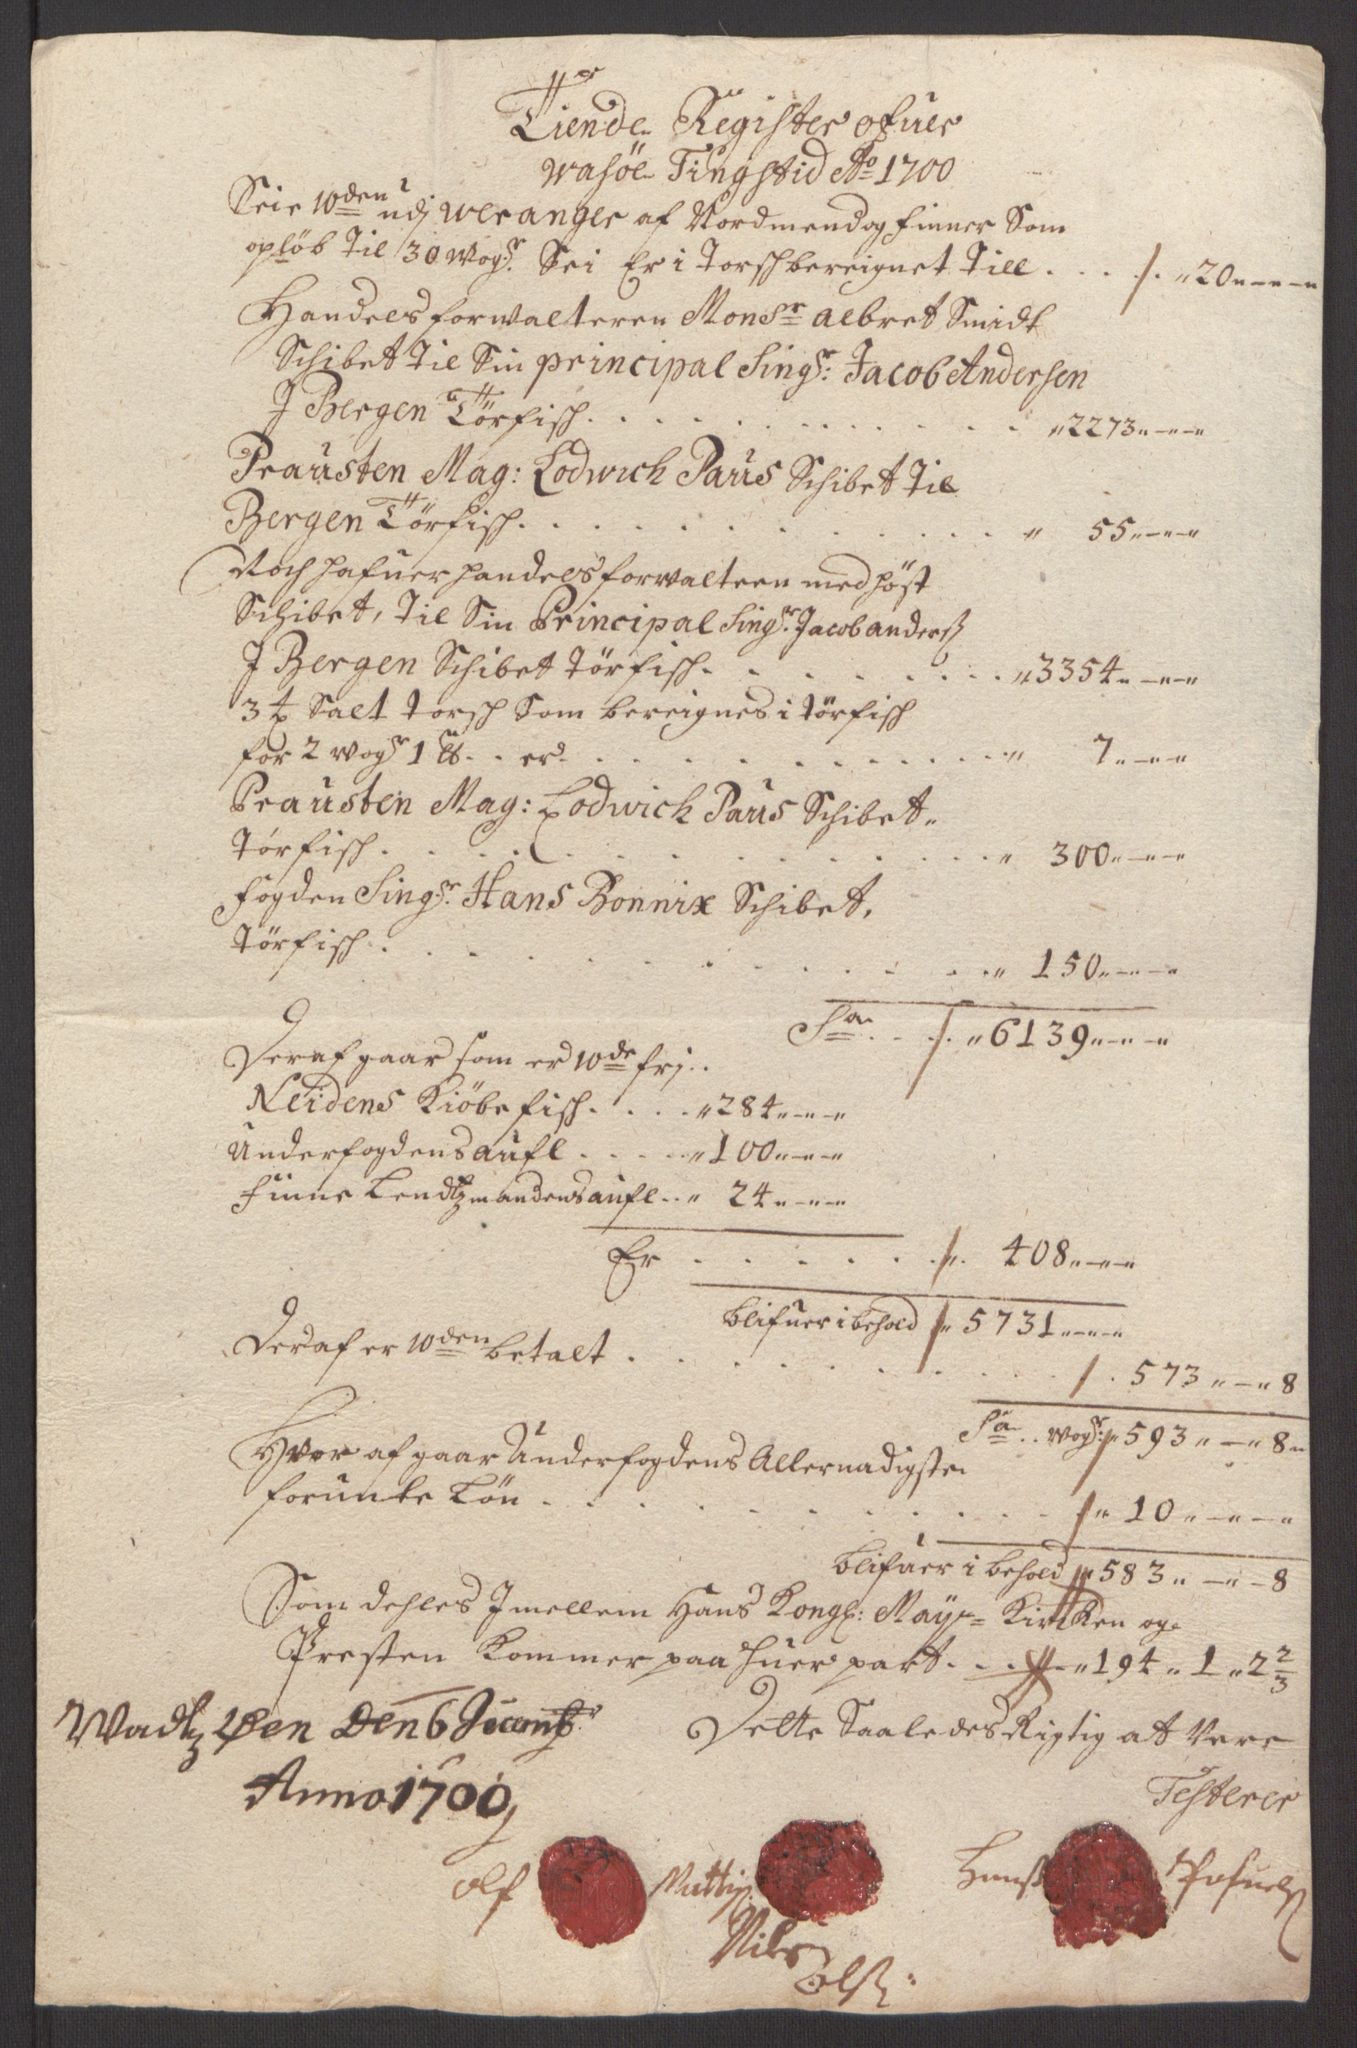 Tiende Register ofuer
Wasöe Tingstid Ao 1700
Seie 10den udj Weranger af Nordmend og Finner Som
opløb Til 30 Wogr. Sei Er i Torsch bereignet Till . . . . 20 „ — „ — „
Handels forwalteren Monsr Albret Smidt
Schibet Til Sin principal Singr: Jacob Andersen
J Bergen Törfisch . . . . . . . . . „ 2273 „ — „ — „
Prausten Mag: Lodwich Paus Schibet Til
Bergen Törfisch . . . . . . . . . „ 55 „ — „ — „
Noch hafuer handels forwalteren med höst
Schibet, Til Sin Principal Singr. Jacob anderß
J Bergen Schibet Törfisch . . . . . . . „ 3354 „ — „ — „
3 Salt Torsch Som bereignes i törfisch
for 2 Wogr 1 . . er . . . . . . . . „ 7 „ — „ — „
Prausten Mag: Lodwich Paus Schibet „
Törfisch . . . . . . . . . . . „ 300 „ — „ — „
Fogden Singr. Hans Bonnix Schibet,
Törfisch . . . . . . . . . . „ 150 „ — „ — „
Sa . . . „ 6139 „ — „ — „
Deraf gaar som er 10de frj . .
Neidens Kiöbe fisch . . . . „ 284 „ — „ — „
Underfogdens aufl . . . . . „ 100 „ — „ — „
Finne Lendtzmandens aufl . . „ 24 „ — „ — „
Er . . . . . . . 408 „ — „ — „
blifuer i behold „ 5731 „ — „ — „
Deraf er 10den betalt . . . . . . . . . . 573 „ — „ 8
Sa . . Wogr: „ 593 „ — „ 8 „
Hvor af gaar Underfogdens Allernadigste
forunte Lön . . . . . . . . . . „ 10 „ — „ — „
blifuer i behold „ 583 „ — „ — 8
Som dehles Jmellem Hans Kongl: Mayt Kircken og
Presten Kommer paa huer part . . . „ 194 „ 1 „ 2 2/3
Wadtz Øen Den 6 Decemb. Dette Saaledes Rigtig at Vere
Anno 1700 Testerer
olf Mattis Hanß Pofuelß
Nils
olß: